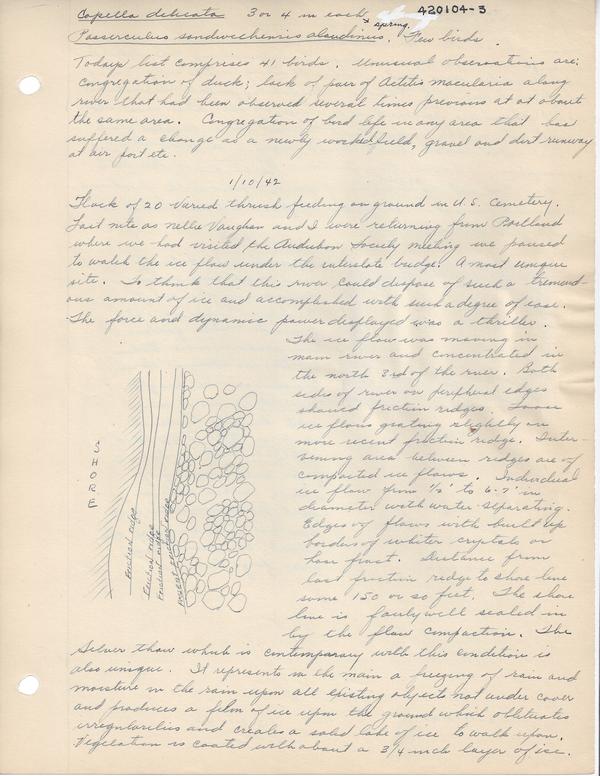 Capella delicata 3 or 4 in each spring. 420104-3
Passerculus sandwichensis alaudinus. Few birds.
Todays list comprises 41 birds. Unusual observations are:
Congregation of duck; lack of pair of Actitis macularia along
river that had been observed several times previous at at about
the same area. Congregation of bird life in any area that has
suffered a change as a newly worked field, gravel and dirt runway
at air port etc.
1/10/42
Flock of 20 varied thrush feeding on ground in U.S. Cemetery.
Last nite as Nellie Vaughan and I were returning from Portland
where we had visited the Audubon Society meeting we paused
to watch the ice flow under the interstate bridge. A most unique
site. To think that this river could dispose of such a tremend-
ous amount of ice and accomplished with such a degree of ease.
The force and dynamic power displayed was a thriller.
The ice flow was moving in
main river and concentrated in
the north 3rd of the river. Both
sides of river on peripheal edges
showed friction ridges. Loose
ice flows grating slightly on
more recent friction ridge. Inter-
vening area between ridges are of
compacted ice flows. Individual
ice flow from 1/2' to 6-7' in
diameter with water separating.
Edges of flows with built up
borders of whiter crystals or
hoar frost. Distance from
last friction ridge to shore line
some 150 or so feet. The shore
line is fairly well sealed in
by the flow compaction. The
SHORE
Friction ridge
Friction ridge
Friction ridge
recent friction ridge
Silver thaw which is contemporary with this condition is
also unique. It represents in the main a freezing of rain and
moisture in the rain upon all existing objects not under cover
and produces a film of ice upon the ground which obliterates
irregularities and creates a solid lake of ice to walk upon.
Vegetation is coated with about a 3/4 inch layer of ice.